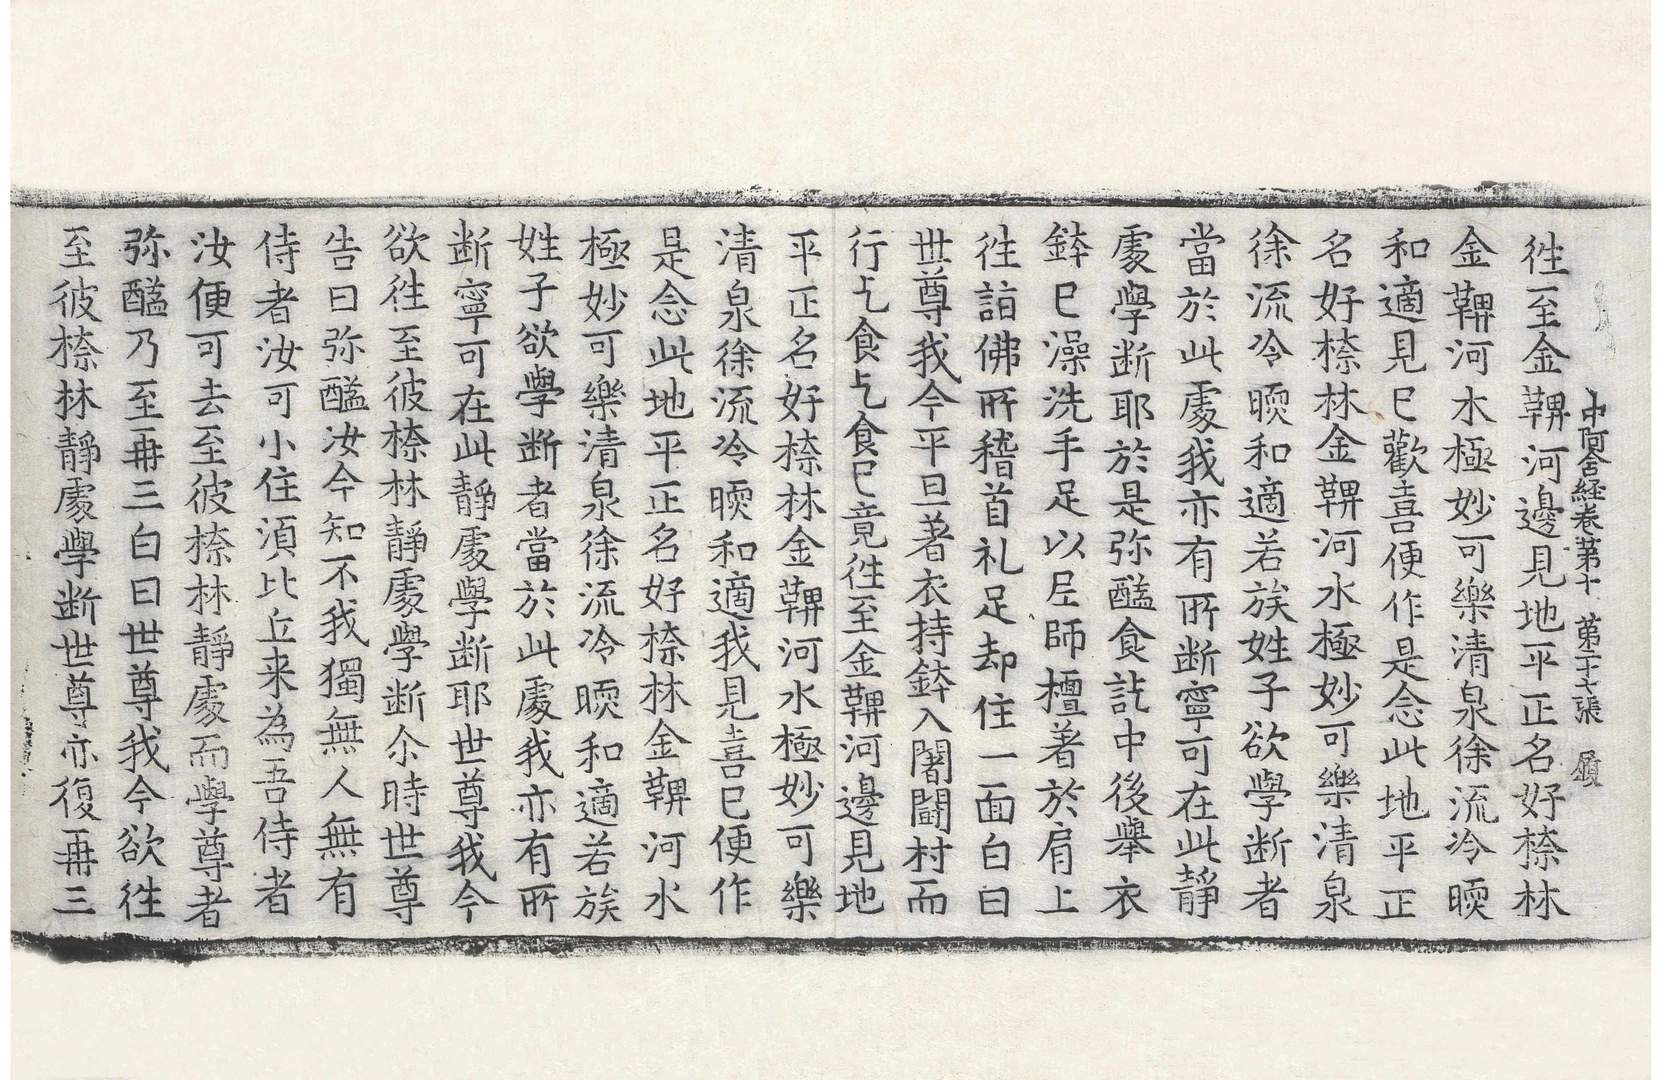 中阿含経卷第十　第二十七張　履
徃至金鞞河邊見地平正名好㮈林
金鞞河水極妙可樂清泉徐流冷暎
和適見已歡喜便作是念此地平正
名好㮈林金鞞河水極妙可樂清泉
徐流冷暎和適若族姓子欲學断者
當於此處我亦有所断寧可在此靜
處學断耶於是弥醯食訖中後舉衣
鉢已澡洗手足以𡰱師檀著於肩上
徃詣佛所稽首礼足却住一面白曰
世尊我今平旦著衣持鉢入闍鬪村而
行乞食乞食已竟徃至金鞞河邊見地
平正名好㮈林金鞞河水極妙可樂
清泉徐流冷暎和適我見喜已便作
是念此地平正名好㮈林金鞞河水
極妙可樂清泉徐流冷暎和適若族
姓子欲學断者當於此處我亦有所
断寧可在此靜處學断耶世尊我今
欲徃至彼㮈林靜處學断尒時世尊
告曰弥醯汝今知不我獨無人無有
侍者汝可小住湏比丘来為吾侍者
汝便可去至彼㮈林靜處而學尊者
弥醯乃至再三白曰世尊我今欲徃
至彼㮈林靜處學断世尊亦復再三